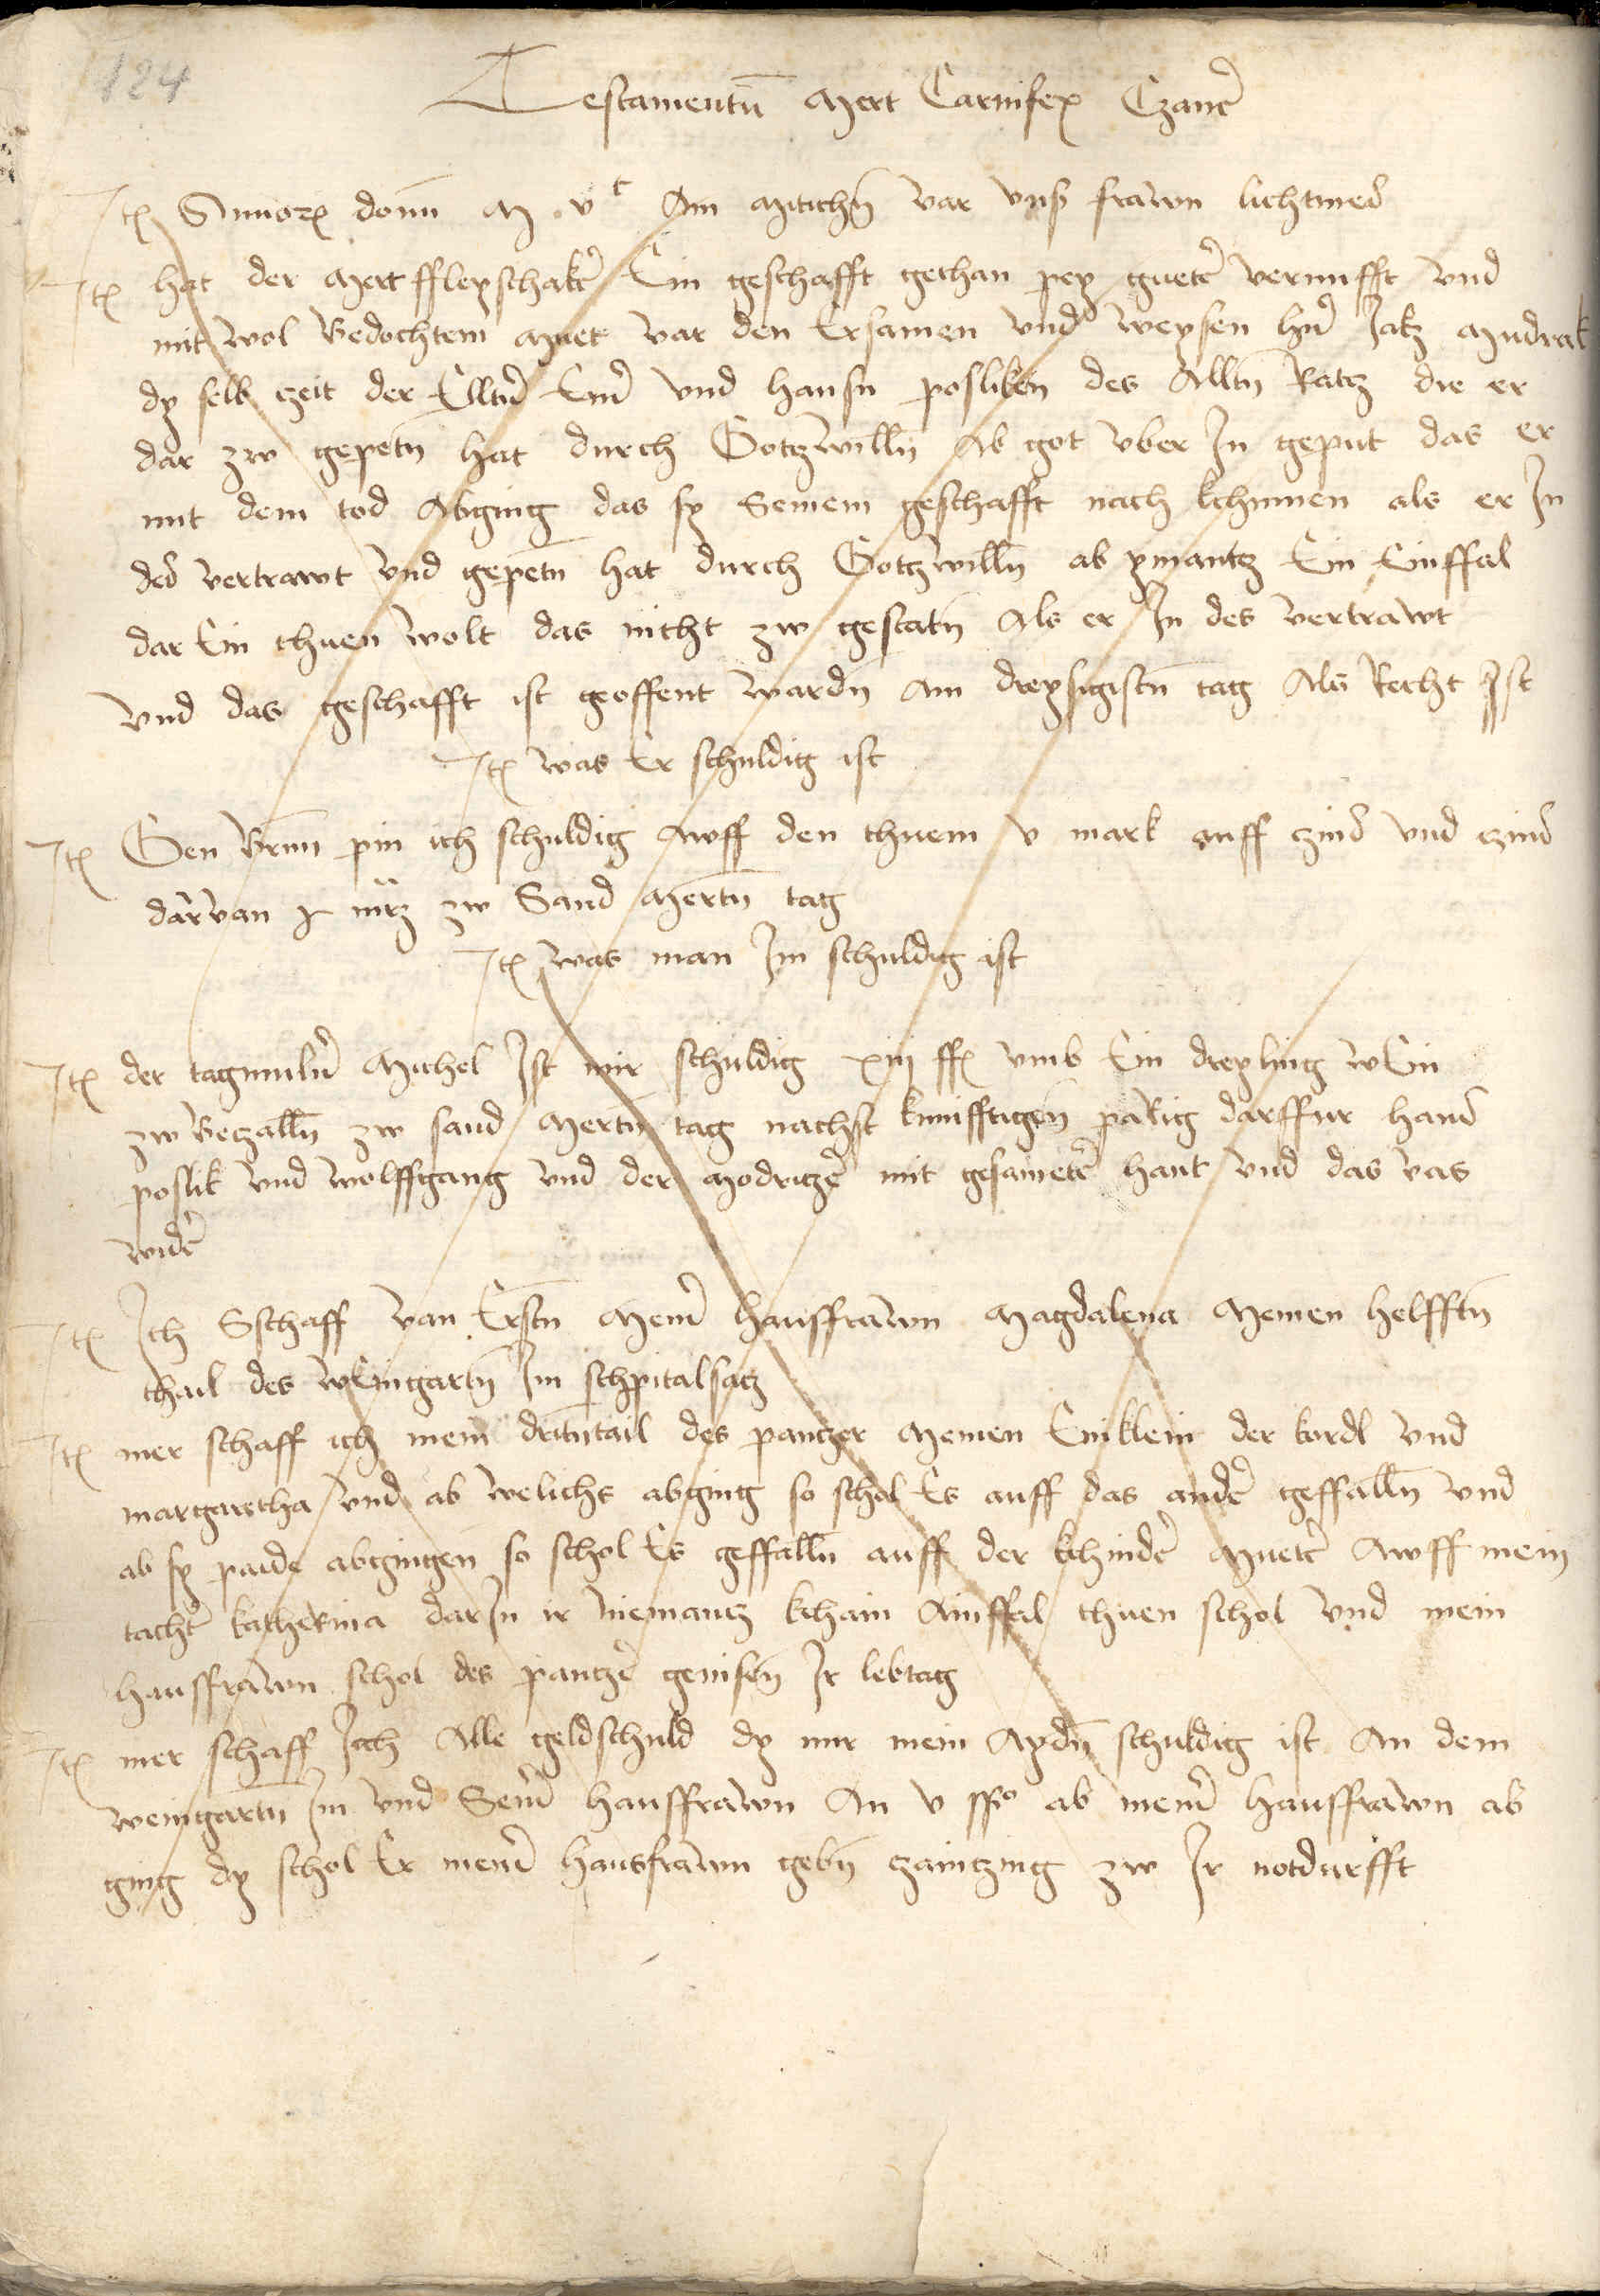 124
Testamentu͂ Mert Carnifex Czaũt
Itꝫ Annorꝫ domī M vᶜ Am Mitichn̄ var vnß frawn lichtmeß
Itꝫ hat der Mert ffleyschakꝰ Ein geschafft gethan pey guetꝰ vernufft vnd
mit wol Bedochtem Muet var den Ersamen vnd weysen hñ Jakꝫ Mudrak
dy selb czeit der Elltñ Einꝰ vnd hansn posliken des Alltn̄ Ratz die er
dar zw gepetn̄ hat durch Gotzwilln Ab got vber In geput das er
mit dem tod Abging das sy Seinem geschafft nach kchumen als er In
des vertrawt vnd gepetn̄ hat durch Gotzwilln̄ ab ymantz Ein Einffal
dar Ein thuen wolt das nicht zw gestatn̄ Als er In des vertrawt
vnd das geschafft ist geoffent wardn̄ Am dreysigistn̄ tag Als Recht Ist
Itꝫ was Er schuldig ist
Itꝫ Gen Brun̄ pin ich schuldig Awff den thuem v mark auff czinß vnd czinß
darvan mrꝫ zw Sand Mertn̄ tag
Itꝫ was man Im schuldig ist
Itꝫ der tagmulñ Michel Ist mir schuldig xiij ffꝫ vmb Ein dreyling wEin
zw Beczalln̄ zw sand Mertn̄ tag nachst kunfftigen̄ parig darffur hanß
poslik vnd wolffgang vnd der Modritzꝰ mit gesametꝰ hant vnd das vas
widꝰ
Itꝫ Ich Sschaff van Erstn̄ Meinꝰ hausffrawn Magdalena Meinen helfftn̄
thail des wEingartn̄ Im schpitalsatz
Itꝫ mer schaff ich mein dritn̄tail des pantzer Meinen Eniklein der kordl vnd
margaretha vnd ab welichs abging so schol Es auff das andꝰ geffalln̄ vnd
ab sy paide abgingen so schol Es geffalln̄ auff der kchindꝰ Muetꝰ Awff mein
tachtꝰ katherina darIn ir niemantz kchain Ainffal thuen schol vnd mein
hausffrawn schol des pantzꝰ genisen̄ Ir lebtag
Itꝫ mer schaff Ich Alle geldschuld dy mir mein Aydn̄ schuldig ist An dem
weingartn̄ Im vnd Seinꝰ hausffrawn An v ab meinꝰ hausffrawn ab
ging dy schol Er meinꝰ hausfrawn gebn̄ czaintzing zw Ir notdurfft